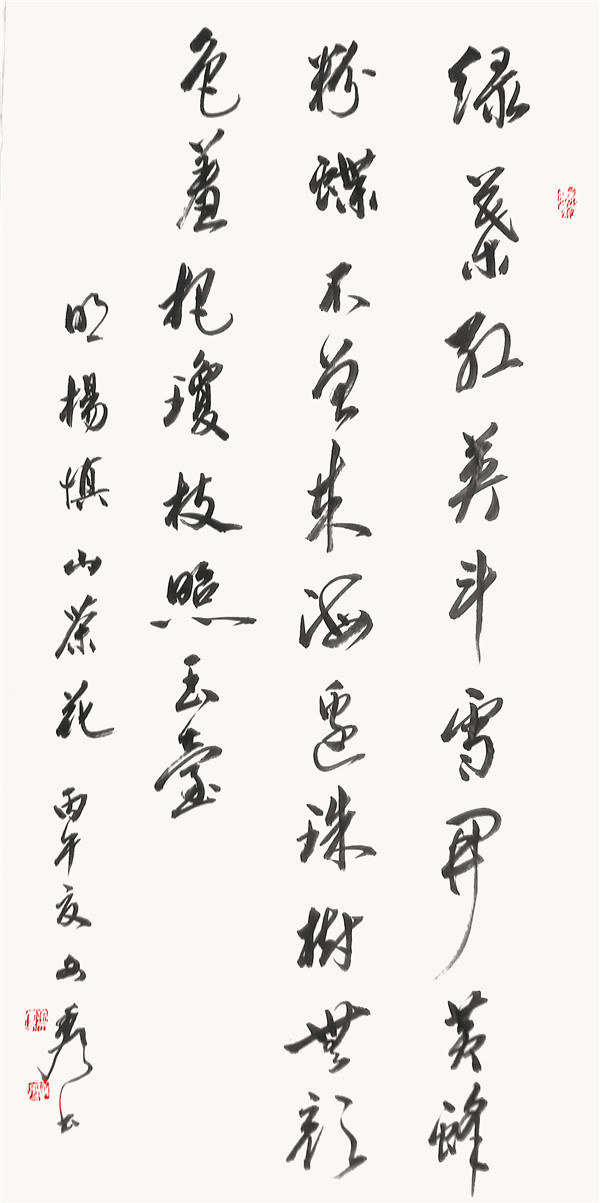 绿葉红英斗雪開黄蜂
粉蝶不曾来海邊珠樹無顔
色羞把瓊枝照玉臺
明楊慎山茶花 丙午夏 秀书